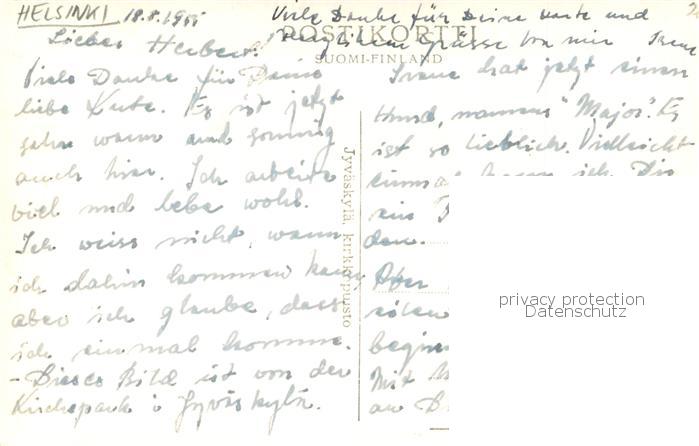 HELSINKI 18.8.1955
Viele Danke für Deine Karte und
herzlichem Grüsse von mir Irene
POSTIKORTTI
SUOMI-FINLAND
Lieber Herbert!
Viele Danke für Deine
liebe Karte. Es ist jetzt
sehr warm und sonnig
auch hier. Ich arbeite
viel und lebe wohl.
Ich weiss nicht, wann
ich dahin kommen kann,
aber ich glaube, dass
ich einmal komme.
- Dieses Bild ist von der
Kirchepark i Jyväskylä.
Jyväskylä, kirkkopuisto
Irene hat jetzt einen
Hund, namens "Major". Es
ist so lieblich. Vielleicht
einmal kann ich Dir
ein
den.
Aber
begin
Mit
an
privacy protection
Datenschutz